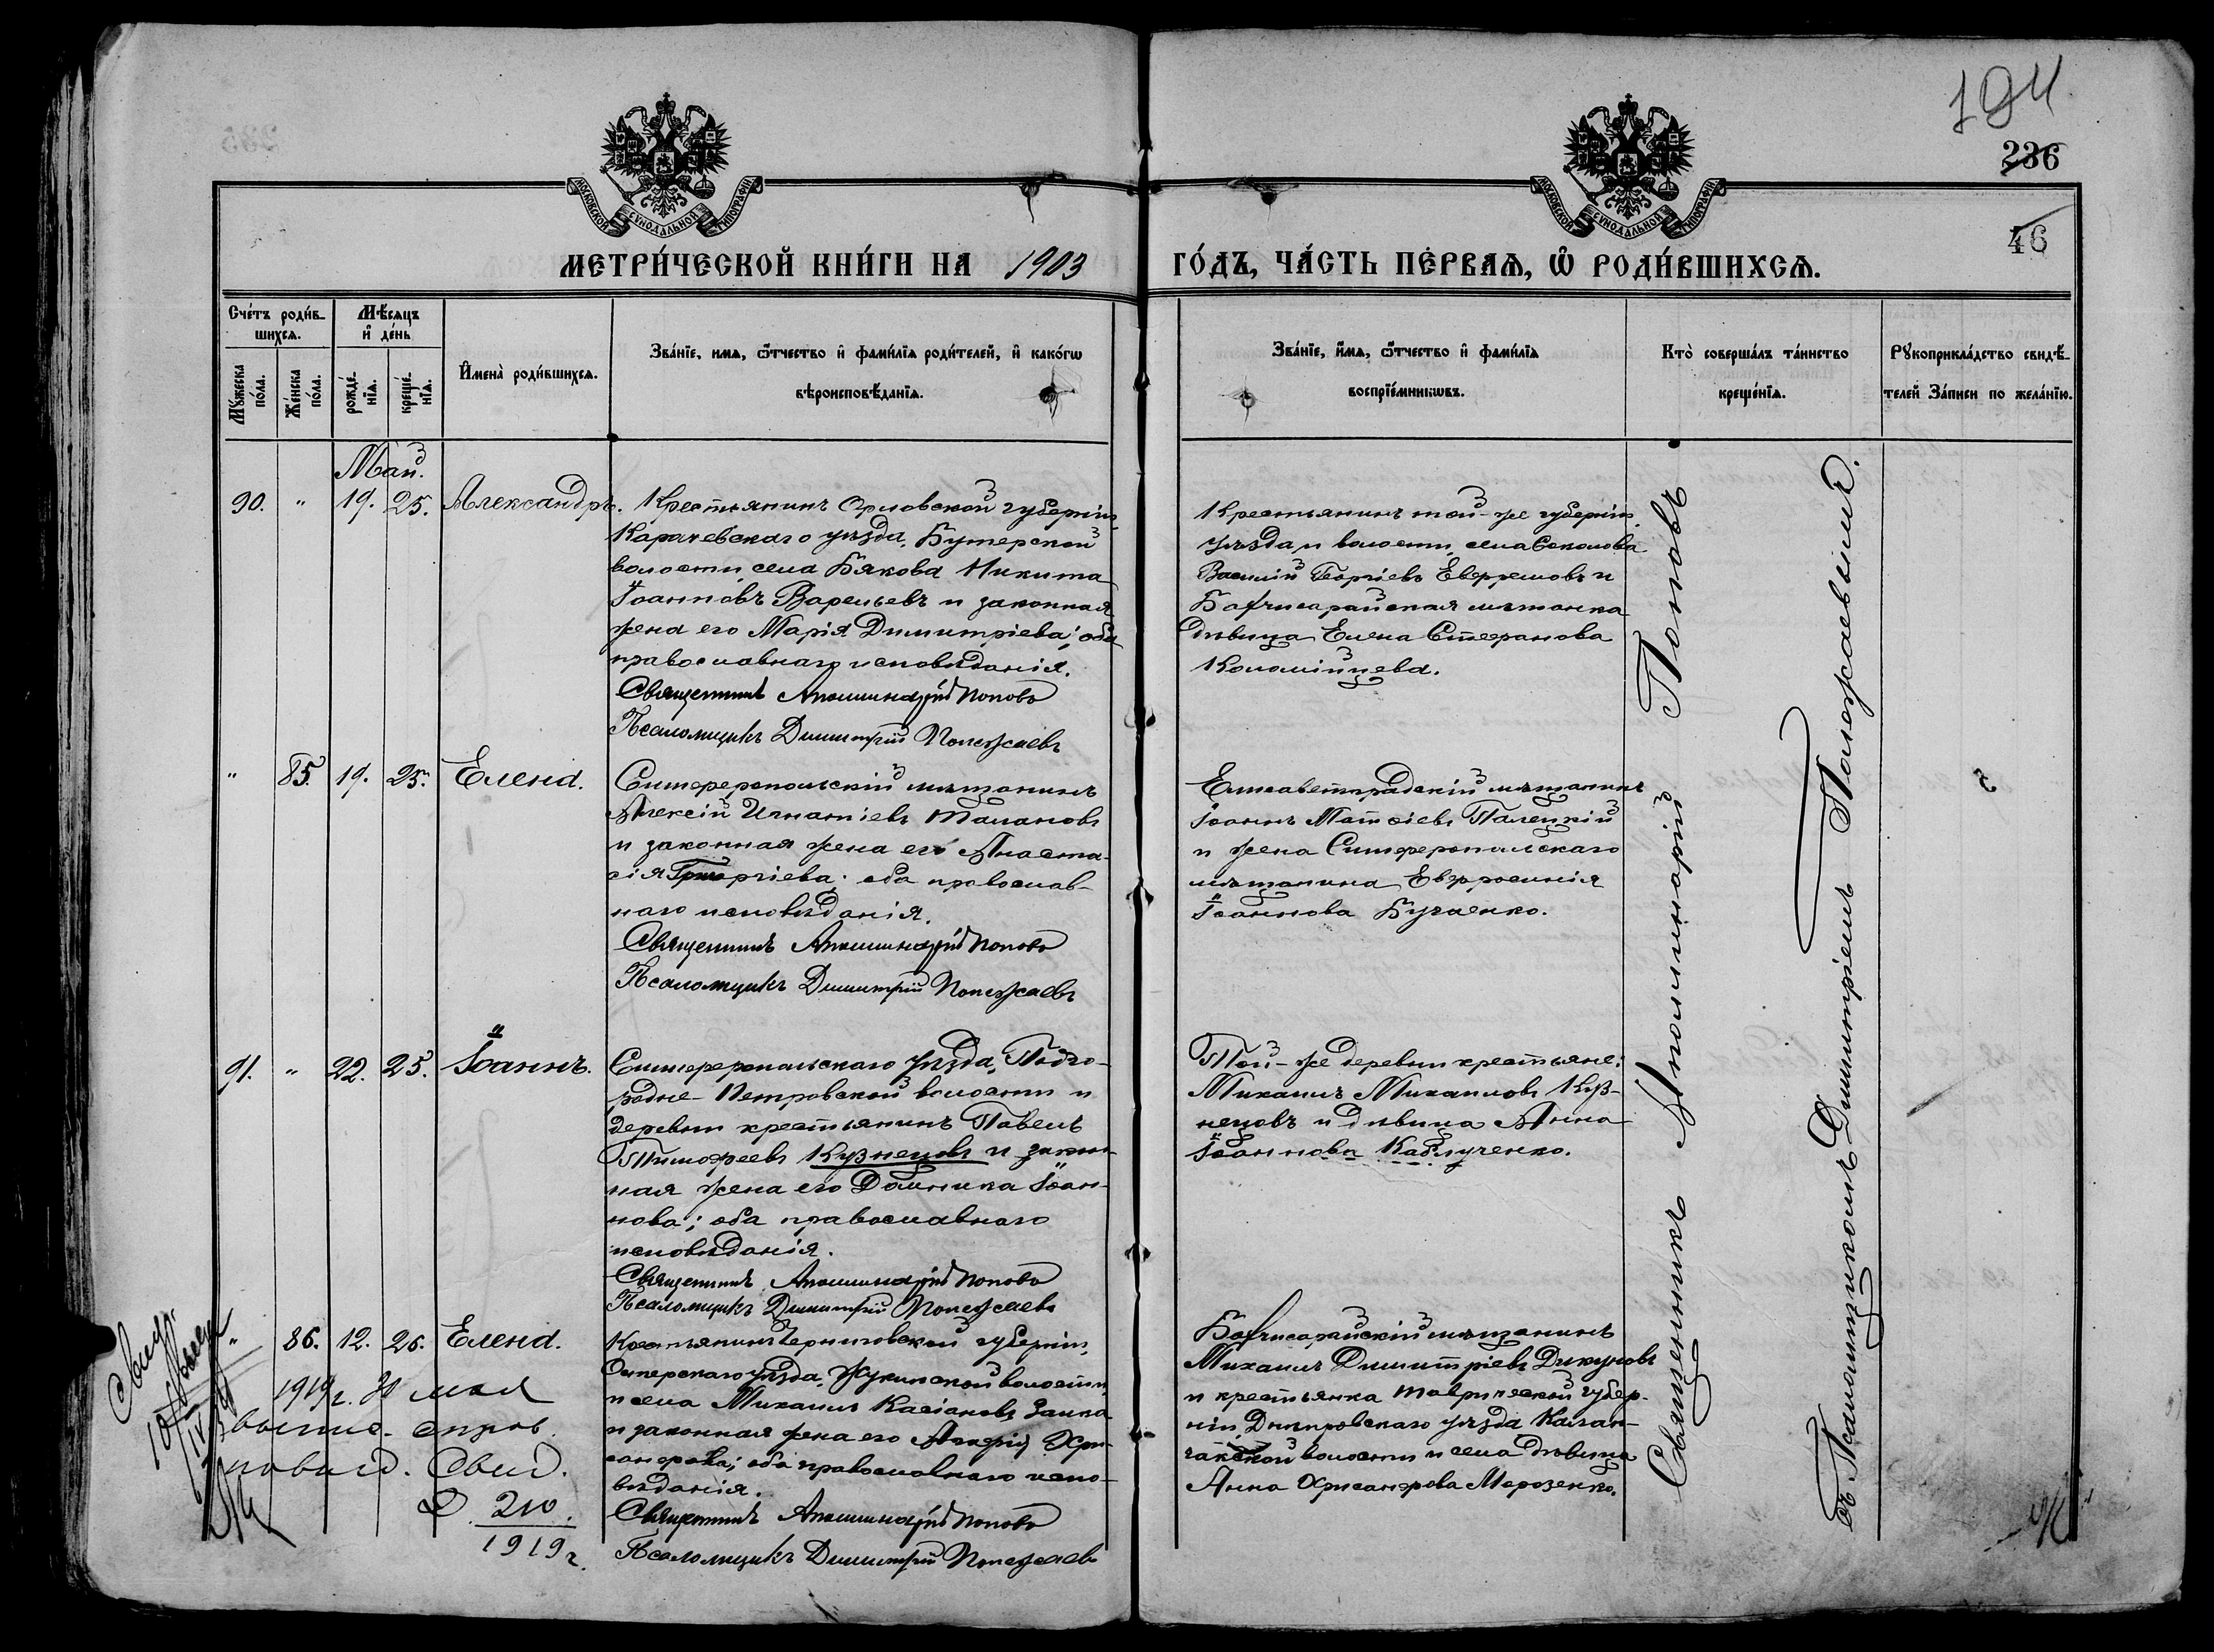 194
236
46
МОСКОВСКОЙ СѴНОДАЛЬНОЙ ТИПОГРАФІИ
МОСКОВСКОЙ СѴНОДАЛЬНОЙ ТИПОГРАФІИ
МЕТРИ́ЧЕСКОЙ КНИ́ГИ НА 1903 ГО́ДЪ, ЧА́СТЬ ПЕ́РВАѦ, Ѡ҆ РОДИ́ВШИХСѦ.
Сче́тъ роди́в-
шихсѧ.
Мꙋ́жеска по́ла.
Же́нска по́ла.
Мѣ́сѧцъ
и҆ де́нь
рожде́-
нїѧ.
креще́-
нїѧ.
И҆мена̀ роди́вшихсѧ.
Зва́нїе, имѧ, ѻ҆́тчество и҆ фами́лїѧ роди́телей, и҆ како́гѡ
вѣроисповѣ́данїѧ.
Зва́нїе, и҆́мѧ, ѻ҆́тчество и҆ фами́лїѧ
воспрїе́мникѡвъ.
Кто̀ соверша́лъ та́инство
креще́нїѧ.
Рꙋкоприкла́дство свидѣ́-
телей За́писи по жела́нїю.
Май.
90. " 19. 25. Александръ.
Крестьянинъ Орловской губерніи,
Карачевскаго уѣзда, Бутерской
волости, села Бякова Никита
Іоанновъ Варельевъ и законная
жена его Марія Димитріева; оба
православнаго исповѣданія.
Священникъ Аполлинарій Поповъ
Псаломщикъ Димитрій Полежаевъ
Крестьянинъ той-же губерніи,
уѣзда и волости, села Соколова
Василій Георгіевъ Евфремовъ и
Бахчисарайская мѣщанка
дѣвица Елена Стефанова
Коломійцева.
" 85. 19. 25. Елена.
Симферопольскій мѣщанинъ
Алексій Игнатіевъ Талановъ
и законная жена его Анаста-
сія Георгіева; оба православ-
наго исповѣданія.
Священникъ Аполлинарій Поповъ
Псаломщикъ Димитрій Полежаевъ
Елисаветградскій мѣщанинъ
Іоаннъ Матѳіевъ Палецкій
и жена Симферопольскаго
мѣщанина Евфросинія
Іоаннова Бугаенко.
91. " 22. 25. Іоаннъ.
Симферопольскаго уѣзда, Подго-
родне-Петровской волости и
деревни крестьянинъ Павелъ
Тимофеевъ Кузнецовъ и закон-
ная жена его Домника Іоан-
нова; оба православнаго
исповѣданія.
Священникъ Аполлинарій Поповъ
Псаломщикъ Димитрій Полежаевъ
Той-же деревни крестьяне:
Михаилъ Михаиловъ Куз-
нецовъ и дѣвица Анна
Іоаннова Каблученко.
" 86. 12. 26. Елена.
Крестьянинъ Черниговской губерніи,
Остерскаго уѣзда, Жукинской волости
и села Михаилъ Касіановъ Заика
и законная жена его Хри-
санфова; оба православнаго испо-
вѣданія.
Священникъ Аполлинарій Поповъ
Псаломщикъ Димитрій Полежаевъ
Бахчисарайскій мѣщанинъ
Михаилъ Димитріевъ Дикуновъ
и крестьянка Таврической губер-
ніи, Днѣпровскаго уѣзда Калан-
чакской волости и села дѣвица
Анна Хрисанфова Морозенко.
1919 г. 30 мая
Свид.
210
1919 г.
Священникъ Аполлинарій Поповъ
съ Псаломщикомъ Димитріемъ Полежаевымъ.